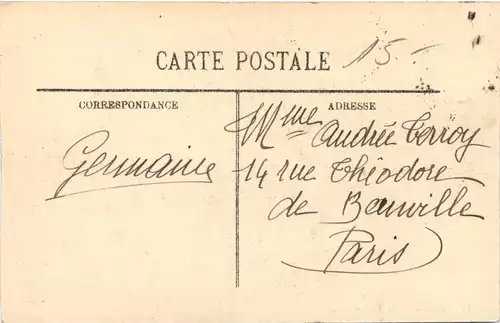 15-
CARTE POSTALE
CORRESPONDANCE
ADRESSE
Germaine
Mme Andrée Terroy
14 rue Théodore
de Banville
Paris